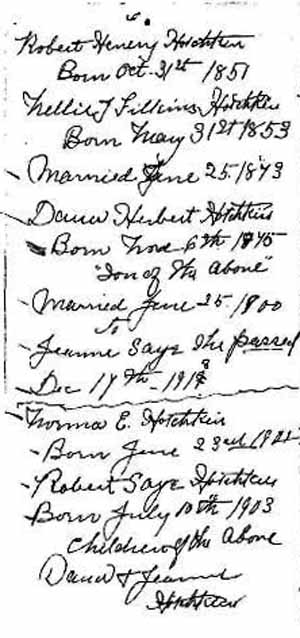 Robert Henery Hotchkiss
Born Oct. 31st 1851
Nellie J Filkins Hotchkiss
Born May 31st 1853
Married June 25. 1873
David Herbert Hotchkiss
Born Nov 6th 1875
"Son of the above"
Married June 25. 1900
to
Jeanne Saye She passed
Dec 17th 1918
Norma E. Hotchkiss
Born June 23rd
Robert Saye Hotchkiss
Born July 10th 1903
Children of the above
David & Jeanne
Hotchkiss